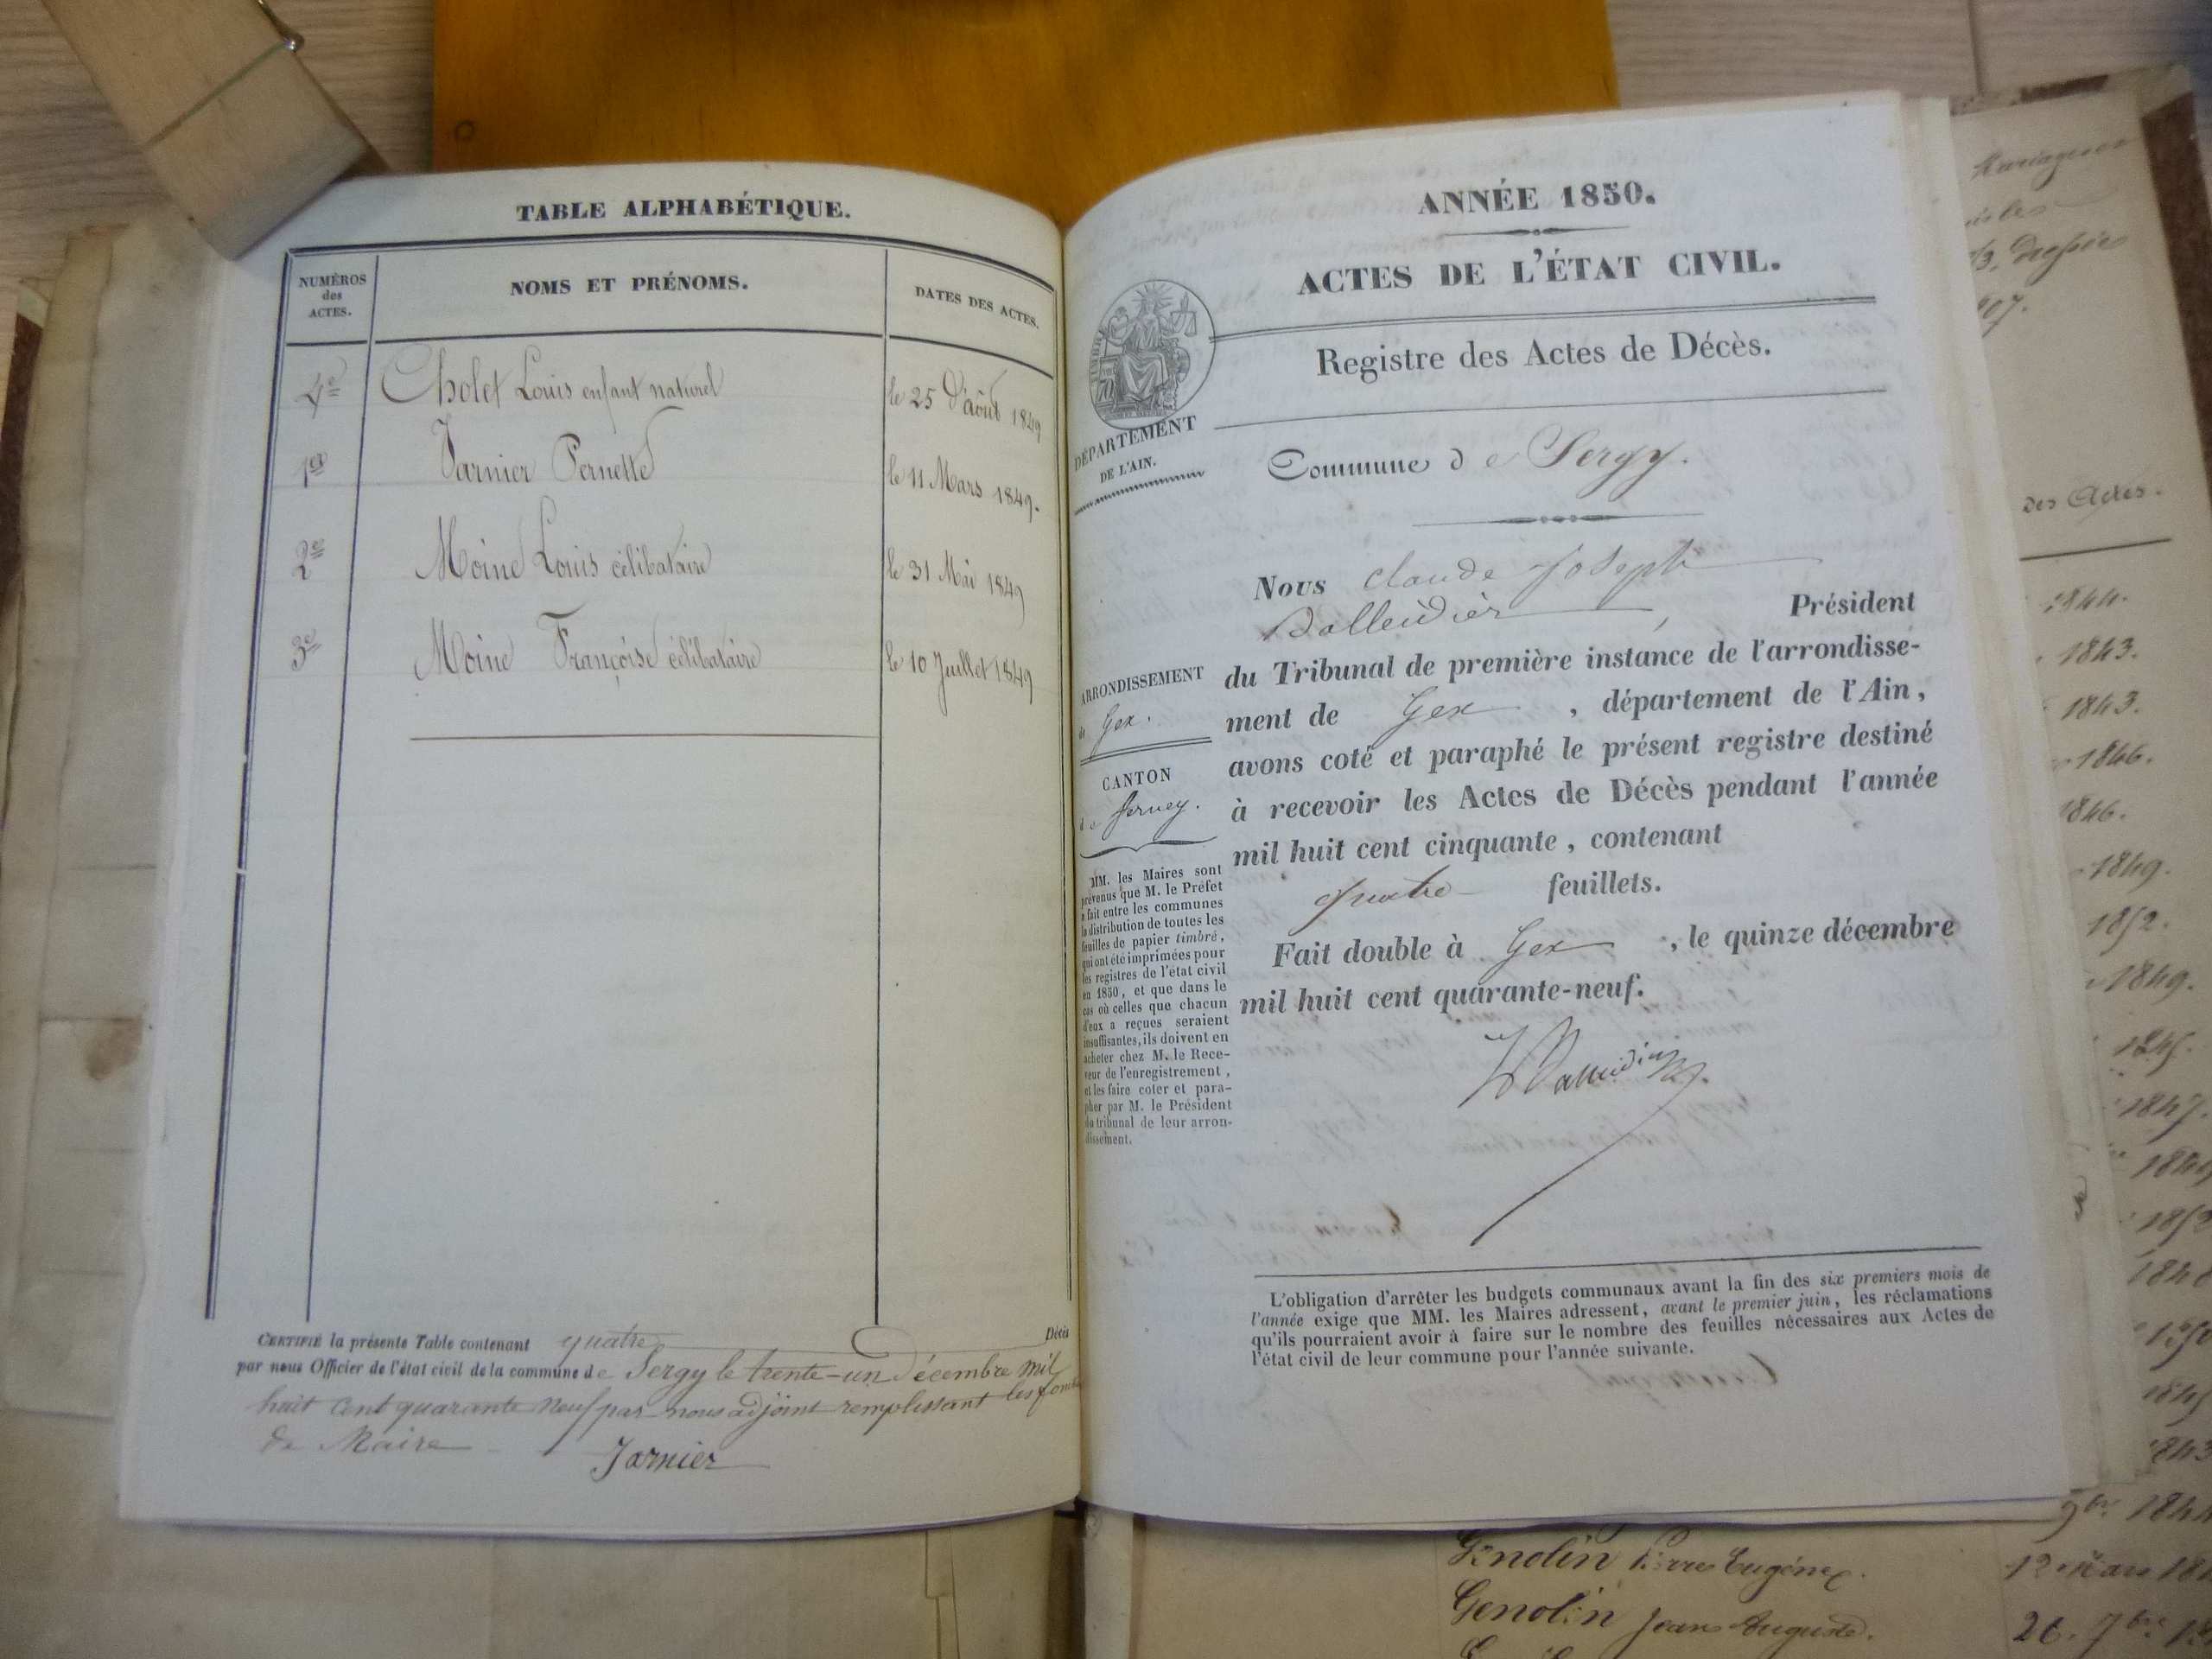 TABLE ALPHABÉTIQUE.
NUMÉROS
des
ACTES.
NOMS ET PRÉNOMS.
DATES DES ACTES.
4e Cholet Louis enfant naturel le 25 D'août 1849
1er Jarnier Pernette le 11 Mars 1849.
2e Moine Louis célibataire le 31 Mai 1849
3e Moine Françoise célibataire le 10 Juillet 1849
CERTIFIÉ la présente Table contenant quatre Décès
par nous Officier de l'état civil de la commune de Sergy le trente-un Décembre mil
huit cent quarante neuf par nous adjoint remplissant les
de Maire
Jarnier
ANNÉE 1850.
ACTES DE L'ÉTAT CIVIL.
Registre des Actes de Décès.
DÉPARTEMENT
DE L'AIN.
Commune de Sergy.
Nous Claude Joseph
Balleidier, Président
du Tribunal de première instance de l'arrondisse-
ment de Gex, département de l'Ain,
avons coté et paraphé le présent registre destiné
à recevoir les Actes de Décès pendant l'année
mil huit cent cinquante, contenant
quatre feuillets.
Fait double à Gex, le quinze décembre
mil huit cent quarante-neuf.
ARRONDISSEMENT
de Gex.
CANTON
de Ferney.
MM. les Maires sont
prévenus que M. le Préfet
a fait entre les communes
la distribution de toutes les
feuilles de papier timbré,
qui ont été imprimées pour
les registres de l'état civil
en 1850, et que dans le
cas où celles que chacun
d'eux a reçues seraient
insuffisantes, ils doivent en
acheter chez M. le Rece-
veur de l'enregistrement,
et les faire coter et para-
pher par M. le Président
du tribunal de leur arron-
dissement.
L'obligation d'arrêter les budgets communaux avant la fin des six premiers mois de
l'année exige que MM. les Maires adressent, avant le premier juin, les réclamations
qu'ils pourraient avoir à faire sur le nombre des feuilles nécessaires aux Actes de
l'état civil de leur commune pour l'année suivante.
Mariages
des Actes.
1844.
1843.
1843.
1846.
1846.
1849.
1852.
1849.
1847.
Genolin Pierre Eugène.
Genolin Jean Auguste. 26. 7bre